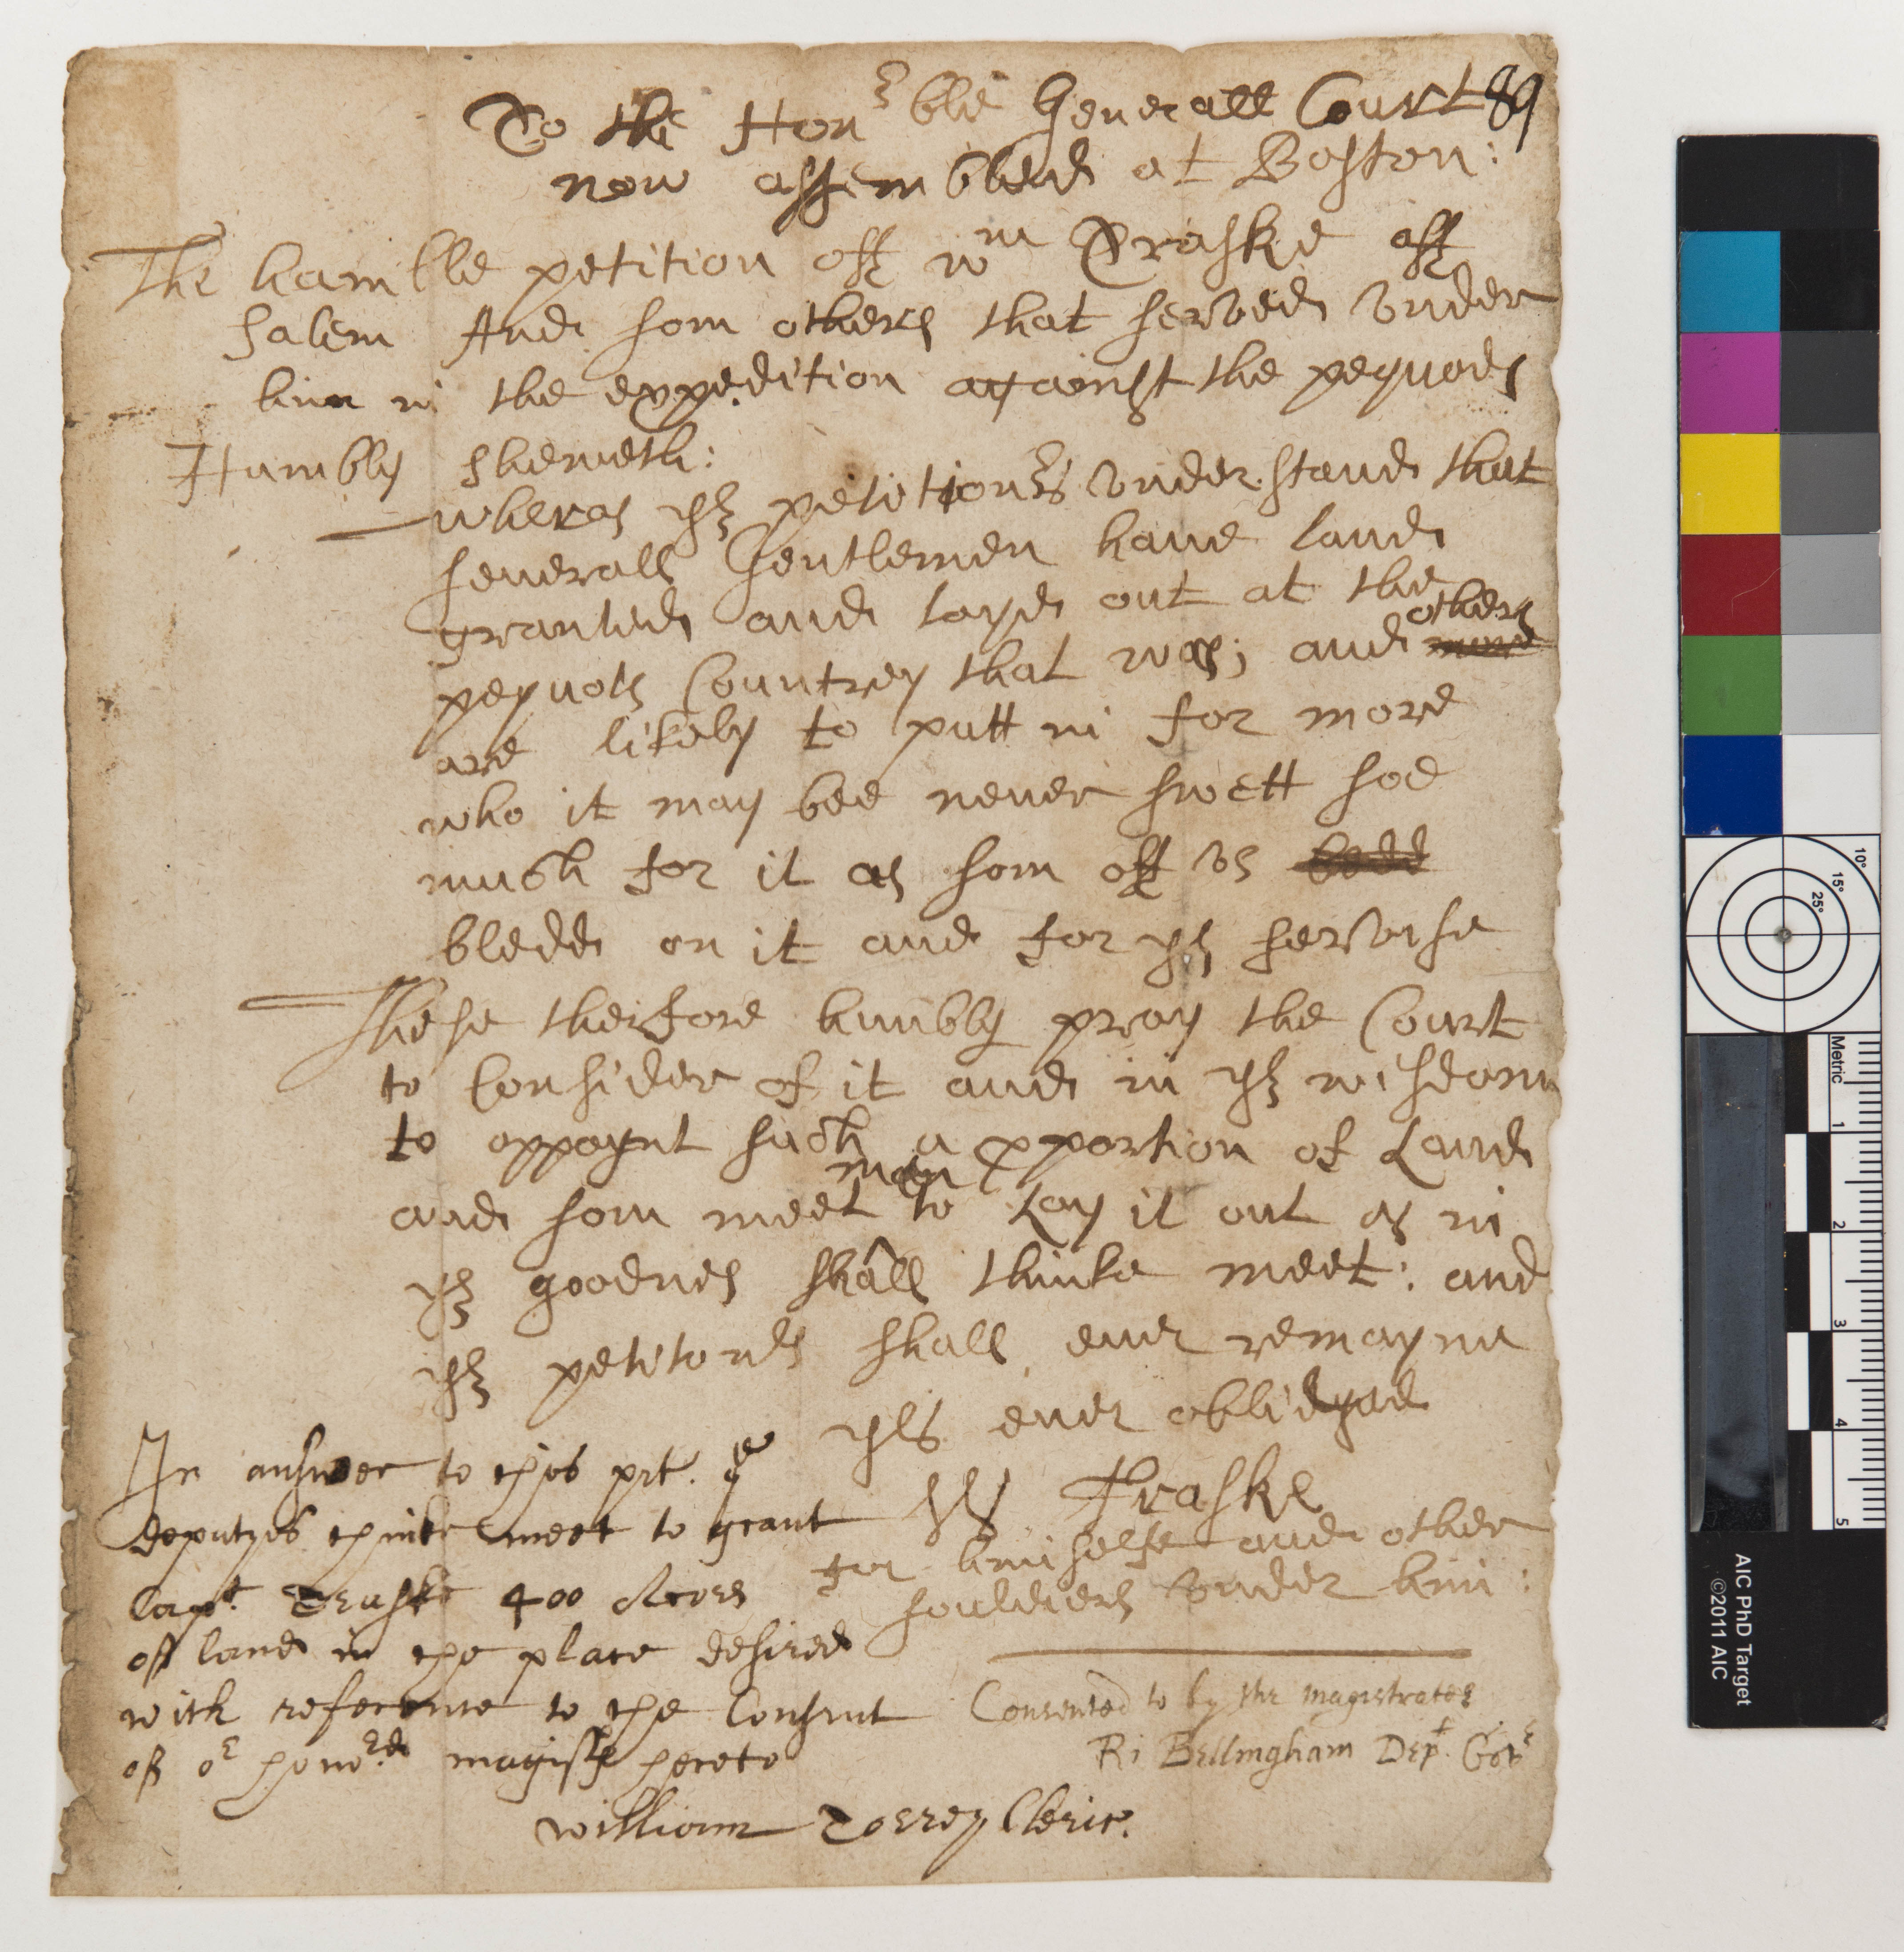 To the Honrble Generall Court 89
now assembled at Boston:
The hamble petition off Wm Traske off
Salem And som others that served vnder
him in the expedition against the pequods
Humbly sheweth:
wheras yr petitionrs vnderstand that
seuerall Gentlemen haue land
granted and layd out at the
pequots Countrey that was; and others
are likely to putt in for more
who it may bee neuer swett soe
much for it as som off vs
bledd on it and for ys servise
These therfore humbly pray the Court
to Consider of it and in yr wisdom
to appoynt such a pportion of Land
and som meet men to Lay it out as in
yr goodnes shall thinke meet: and
yr petitiors shall euer remayne
yrs euer oblidged
W Traske
for himselfe and other
souldiers vnder him:
In answer to this pet. ye
deputyes thinke meet to grant
Capt. Traske 400 Acres
off land in the place desired
with reference to the Consent
off or honord. magists hereto
William Torrey Cleric.
Consented to by the magistrates
Ri Bellingham Dept. Govr
10°
15°
25°
Metric
1
2
3
4
5
AIC PhD Target
©2011 AIC